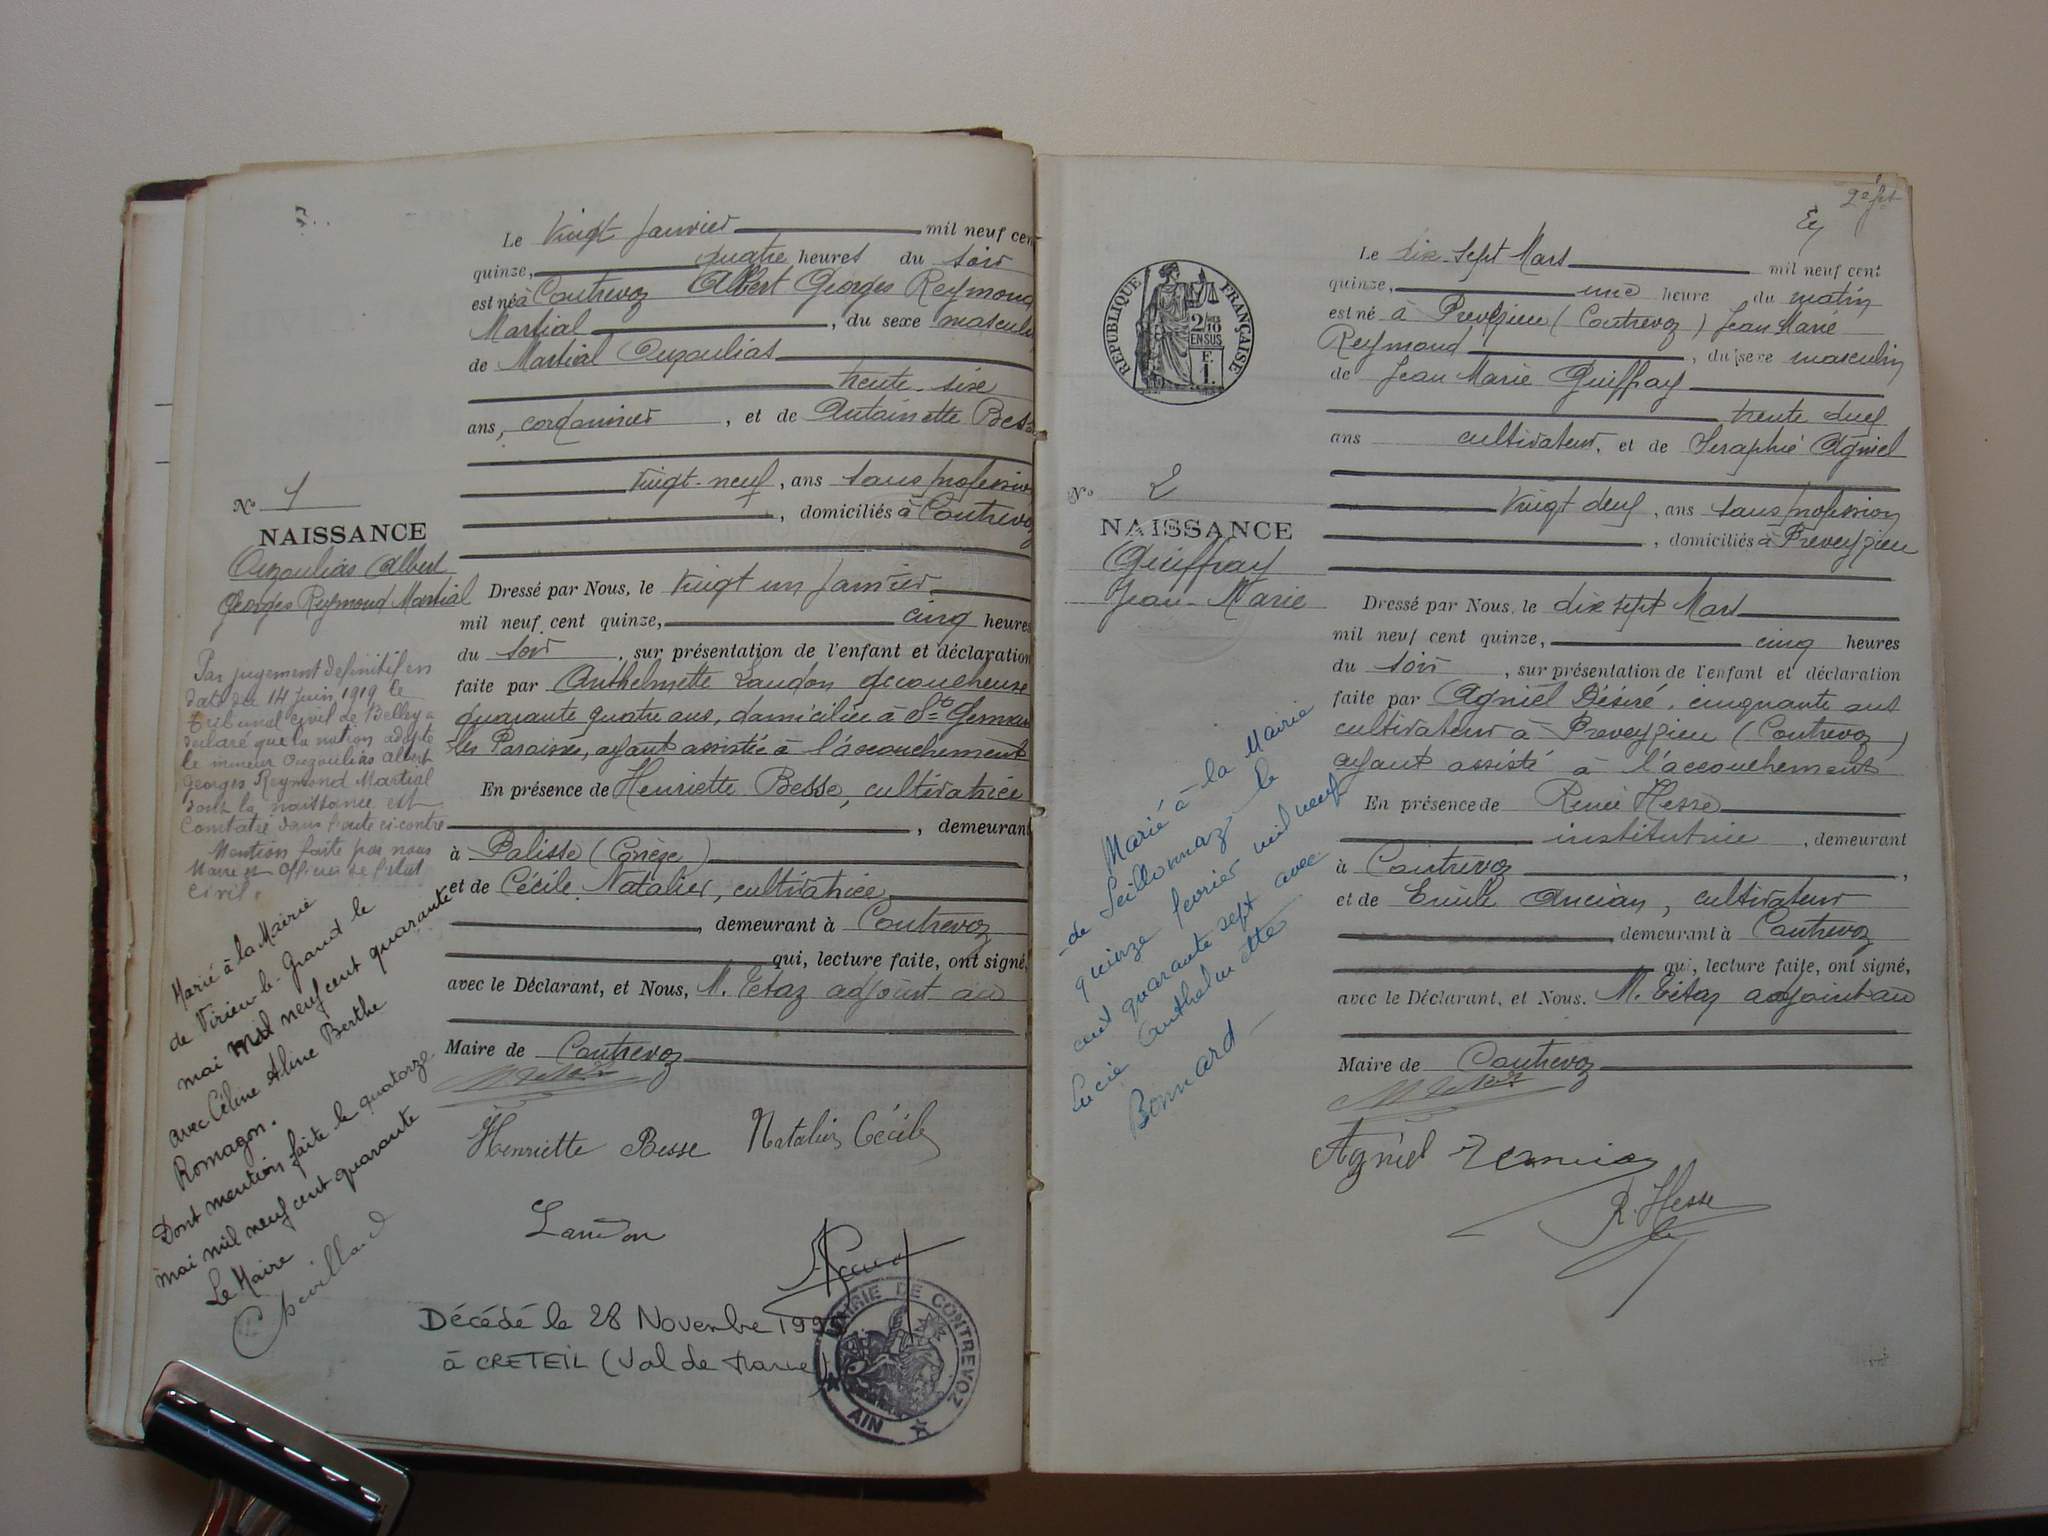 Le vingt Janvier mil neuf cent
quinze, quatre heures du soir
est né à Contrevoz Albert Georges Reymond
Martial, du sexe masculin
de Martial Ouzoulias
trente-six
ans, cordonnier, et de Antoinette Besse
vingt-neuf, ans sans profession
, domiciliés à Contrevoz
N° 1
NAISSANCE
Ouzoulias Albert
Georges Reymond Martial
Dressé par Nous, le vingt un Janvier
mil neuf cent quinze, cinq heures
du soir, sur présentation de l'enfant et déclaration
faite par Anthelmette Landon accoucheuse
quarante quatre ans, domiciliée à St Germain
les Paroisses, ayant assistée à l'accouchement
En présence de Henriette Besse, cultivatrice
, demeurant
à Palisse (Corrèze)
et de Cécile Natalier, cultivatrice
, demeurant à Contrevoz
qui, lecture faite, ont signé,
avec le Déclarant, et Nous, M. Tétaz adjoint au
Maire de Contrevoz
Henriette Besse Natalier Cécile
Landon
Par jugement définitif en
date du 14 Juin 1919 le
tribunal civil de Belley a
déclaré que la nation adopte
le mineur Ouzoulias Albert
Georges Reymond Martial
dont la naissance est
constaté dans l'acte ci-contre
Mention faite par nous
Maire et Officier de l'état
civil.
Marié à la Mairie
de Virieu-le-Grand le
mai mil neuf cent quarante
avec Céline Aline Berthe
Romagon.
Dont mention faite le quatorze
mai mil neuf cent quarante
Le Maire
Chevilland
Décédé le 28 Novembre 199
à CRETEIL (Val de Marne)
MAIRIE DE CONTREVOZ
AIN
2e fet
Le dix-sept Mars mil neuf cent
quinze, une heure du matin
est né à Preveyzieu (Contrevoz) Jean Marie
Reymond, du sexe masculin
de Jean Marie Guiffray
trente deux
ans cultivateur, et de Seraphie Agniel
vingt deux, ans sans profession
, domiciliés à Preveyzieu
RÉPUBLIQUE FRANÇAISE
2/10 EN SUS
F. 1.
N° 2
NAISSANCE
Guiffray
Jean-Marie
Dressé par Nous, le dix sept Mars
mil neuf cent quinze, cinq heures
du soir, sur présentation de l'enfant et déclaration
faite par Agniel Désiré, cinquante ans
cultivateur à Preveyzieu (Contrevoz)
ayant assisté à l'accouchement
En présence de Renée Hesse
institutrice, demeurant
à Contrevoz,
et de Emile Ancian, cultivateur
demeurant à Contrevoz
qui, lecture faite, ont signé,
avec le Déclarant, et Nous. M. Tétaz adjoint au
Maire de Contrevoz
Agniel
R. Hesse
Marié à la Mairie
de Seillonnaz le
quinze fevrier mil neuf
cent quarante sept avec
Lucie Anthelmette
Bonnard